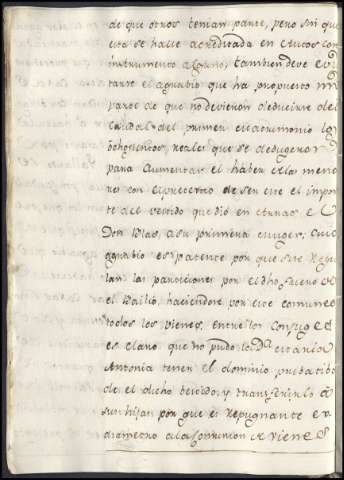 de que otros tenian parte, pero sin que
esto se halle acreditada en Autos con
instrumento alguno; tambien deve evi
tarse el agravio que ha propuesto mi
parte de que no devieron deducirse del
Caudal del primer matrimonio los
ochocientos reales que se dedugeron
para aumentar el haber de la menores
res con el pretexto de ser este el impor
te del vestido que dió en
Don Blas, a su primera muger; cuio
agravio es patente por que si se Regu
lan las particiones por el dho fuero de
el Bailio, haciendose por este comunes
todos los vienes, entre los Conyuges
es claro que no pudo la Dª Maria
Antonia tener el dominio privatibo
de el dicho bestido, y transferirlo a
sus hijas por que es Repugnante ex
diametro a la Comunion de vienes